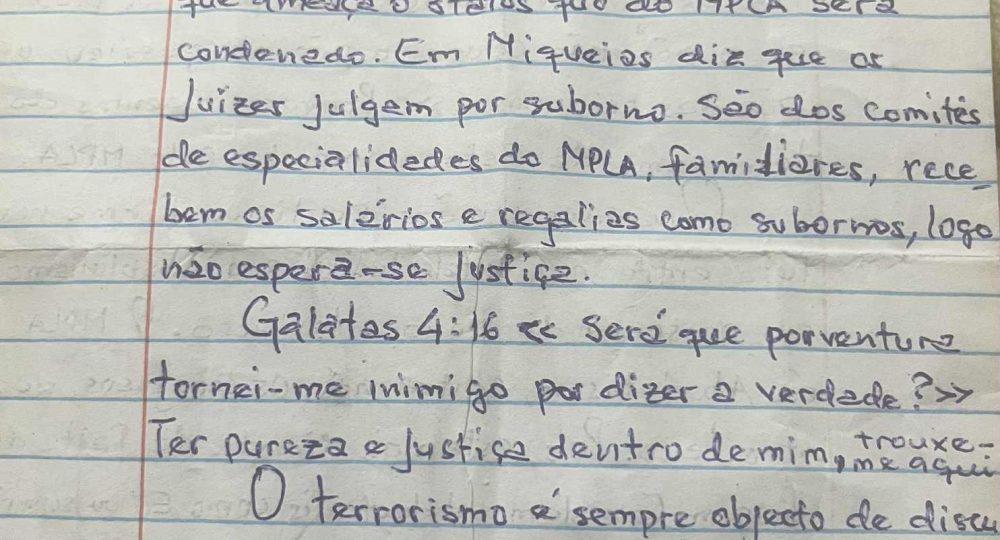 que ameaça o status quo do MPLA será
condenado. Em Miqueias diz que os
Juizes julgam por suborno. São dos comités
de especialidades do MPLA, familiares, rece-
bem os salários e regalias como subornos, logo
não espera-se justiça.
Galatas 4:16 << Será que porventura
tornei-me inimigo por dizer a verdade?>>
Ter pureza e justiça dentro de mim, trouxe-
me aqui
O terrorismo é sempre objecto de discu